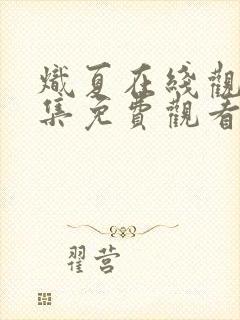 熾夏在綫觀
集免費觀看
翟营